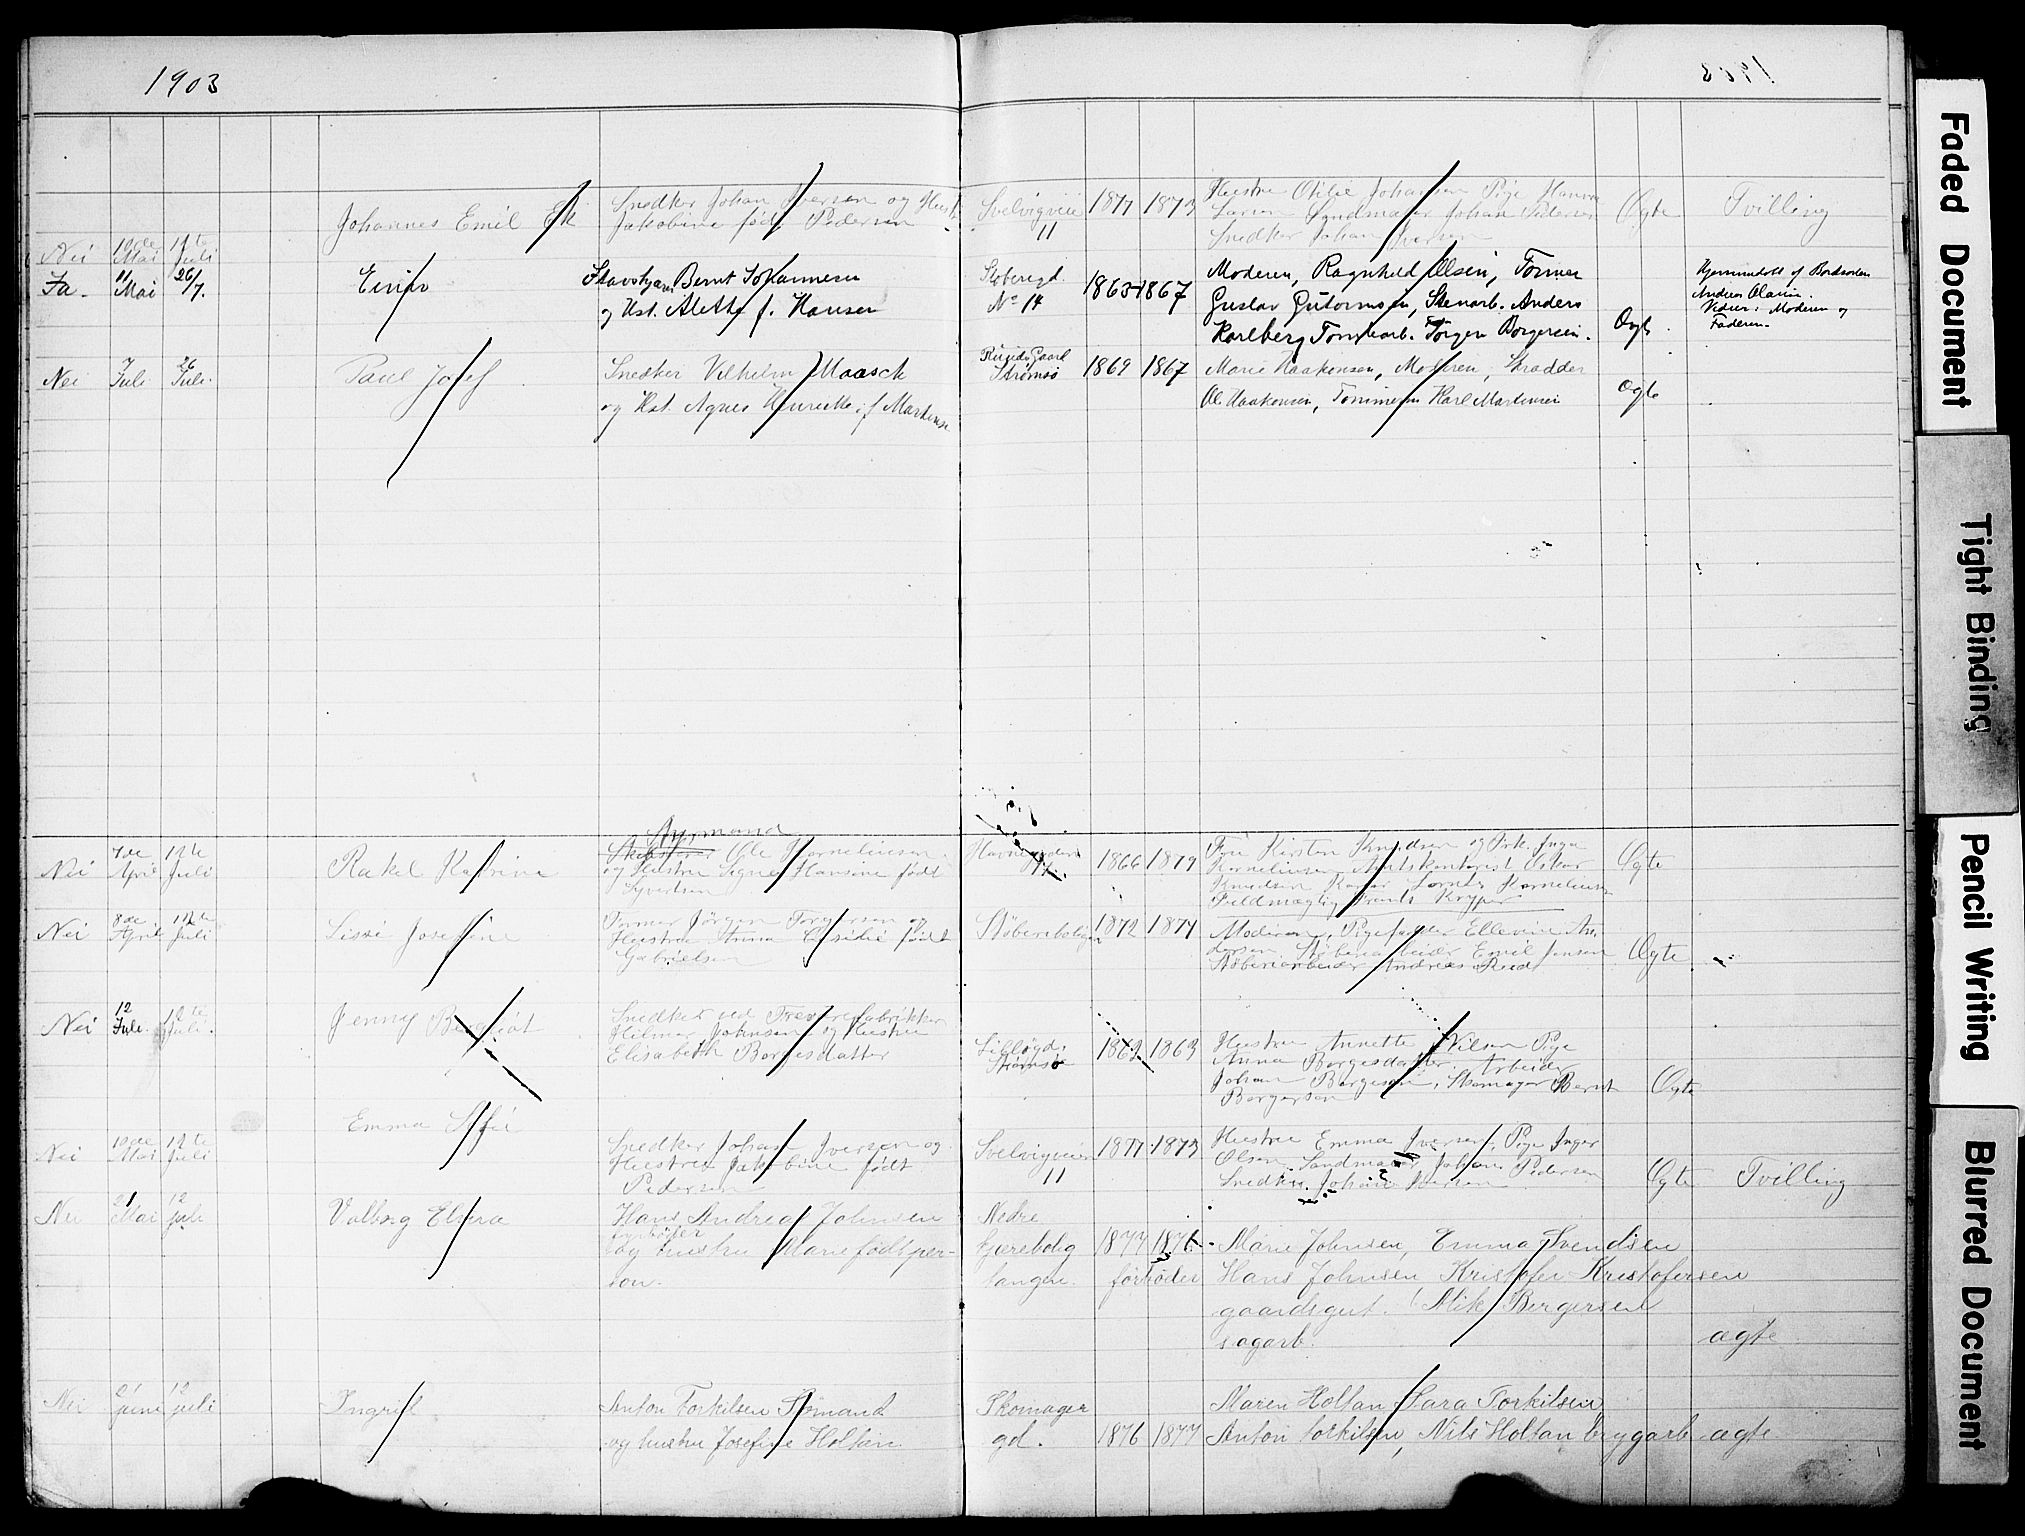 1903
Johannes Emil Ek
Snedker Johan Iversen og Hust.
Jakobine født Pedersen
Svelvigveien
11
1877 1873
Hustru Otilie Johansen Pige Hanna
Larsen Sandmager Johan Pedersen
Snedker Johan Iversen
Ægte
Tvilling
Nei
10de Mai
12te Juli
Ja.
11 Mai
26/7.
Einar
Bernt Johannesen
og Hst. Alethe f. Hansen
Støberigd.
No 14
1863 1867
Moderen, Ragnhild Olsen, Tømmer
Gustav Gutormsen, Stenarb. Anders
Karlberg Tomtearb. Jørgen Borgersen.
Ægte
Hjemmedøbt af Bordskriver
Andreas Olavsen.
Vidner: Moderen og
Faderen.
Nei
7 Juli
26 Juli.
Paul Josef
Snedker Vilhelm Maasch
og Hst. Agnes Henriette f. Martinsen
Strømsø
1869 1867
Marie Haakonsen, Moderen, Skrædder
Ole Haakonsen, Tømmerm Karl Martinsen
Ægte
Nei
7de April
12te Juli
Rakel Katrine
Styrmand
Ole Korneliusen
og Hustru Signe Hansine født
Syvertsen
Havnegaden
1866 1879
Fru Kirsten Knudsen og Frk. Inga
Korneliusen Amtskontorist Oskar
Knudsen Lornts Kornelius
Feldmægtig Frants Kryper
Ægte
Nei
8de April
12te Juli
Lissi Josefine
Tømmer Jørgen Torgersen og
Hustru Anna Osidie født
Gabrielsen
Støberiboligen
1872 1874
Moderen, Pige Ellevine An-
dersen Støberiarbeider Emil Jensen
Støberiarbeider Andreas Ruud
Ægte
Nei
12 Juli.
12te Juli.
Jenny Bergljot
Snedker ved Trevarefabrikken
Hilmar Johnsen og Hustru
Elisabeth Borgesdatter
Lilløgd.
Strømsø
1869 1863
Hustru Annette Nilsen Pige
Anna Borgesdatter. Arbeider
Johan Borgesen, Skomager Bernt
Borgersen
Ægte
Emma Sofie
Nei
10de Mai
12te Juli
Snedker Johan Iversen og
Hustru Jakobine født
Pedersen
Svelvigveien
11
1877 1873
Hustru Emma Iversen, Pige Inger
Olsen Sandmager Johan Pedersen
Snedker Johan Iversen
Ægte
Tvilling
Nei
21 Mai
12 juli
Valborg Elvira
Hans Andreas Johnsen
fyrbøter
og hustru Marie født per-
son.
Nedre
kjærebolig
langen.
1877 1876
ført øder
Marie Johnsen, Emma Svendsen
Hans Johnsen Kristofer Kristofersen
gaardsgut. Mik Bergersen
sagarb.
ægte
Nei
21 juni
12 juli
Ingrid
Anton Torkilsen Sømand
og hustru Josefine Holtan
Skomager
gd.
1876 1877
Maren Holtan Sara Torkilsen
Anton torkilsen, Nils Holtan brygarb
ægte
Faded Document
Tight Binding
Pencil Writing
Blurred Document